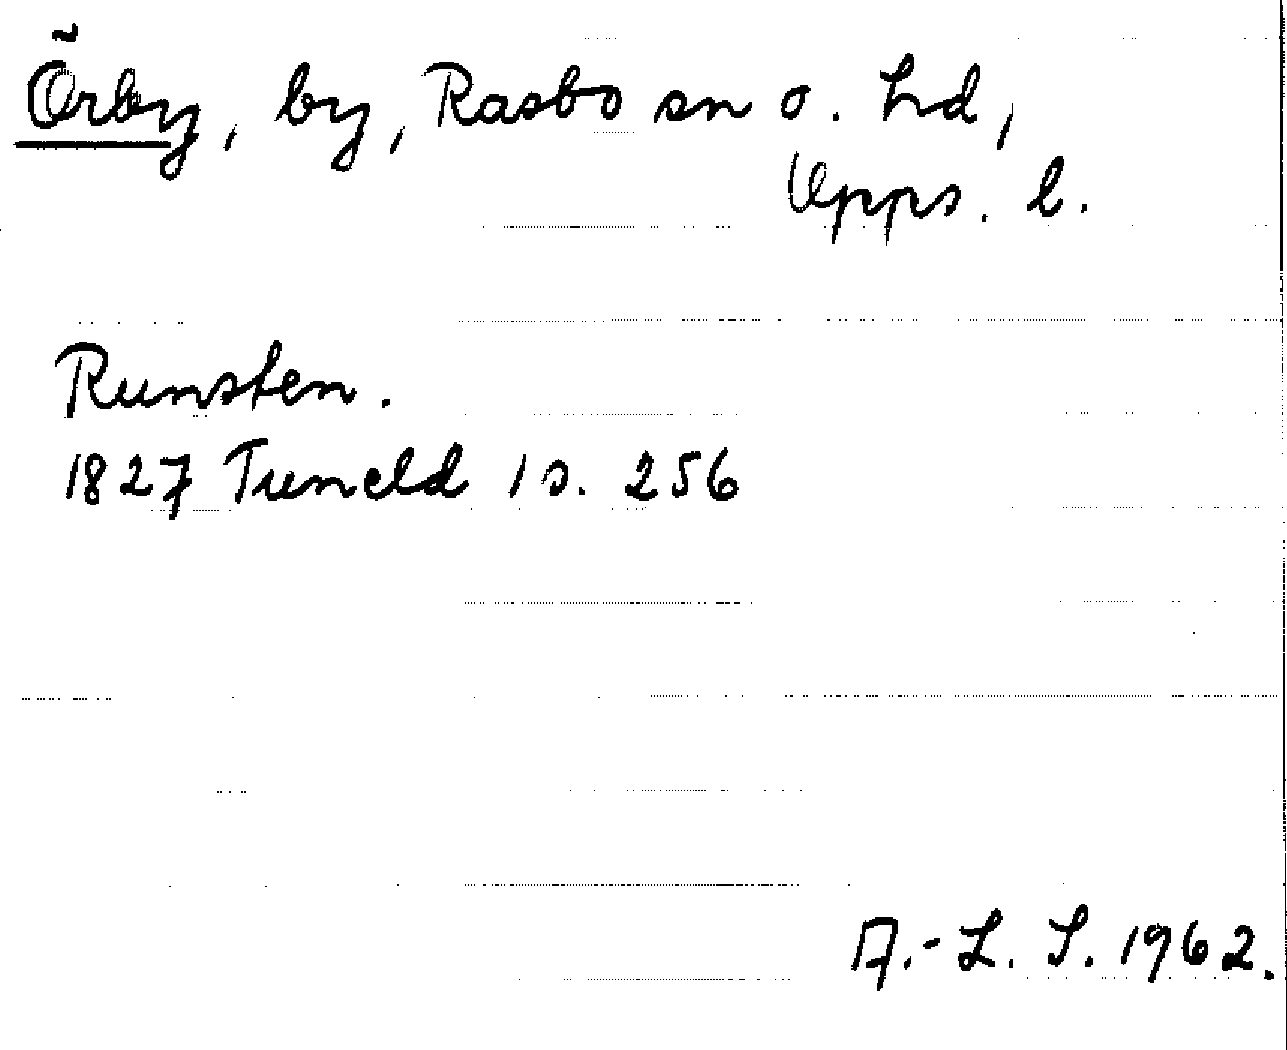 Örby, by, Rasbo sn o. hd,
Upps. l.
Runsten.
1827 Tuneld 1 s. 256
A.-L. S. 1962.